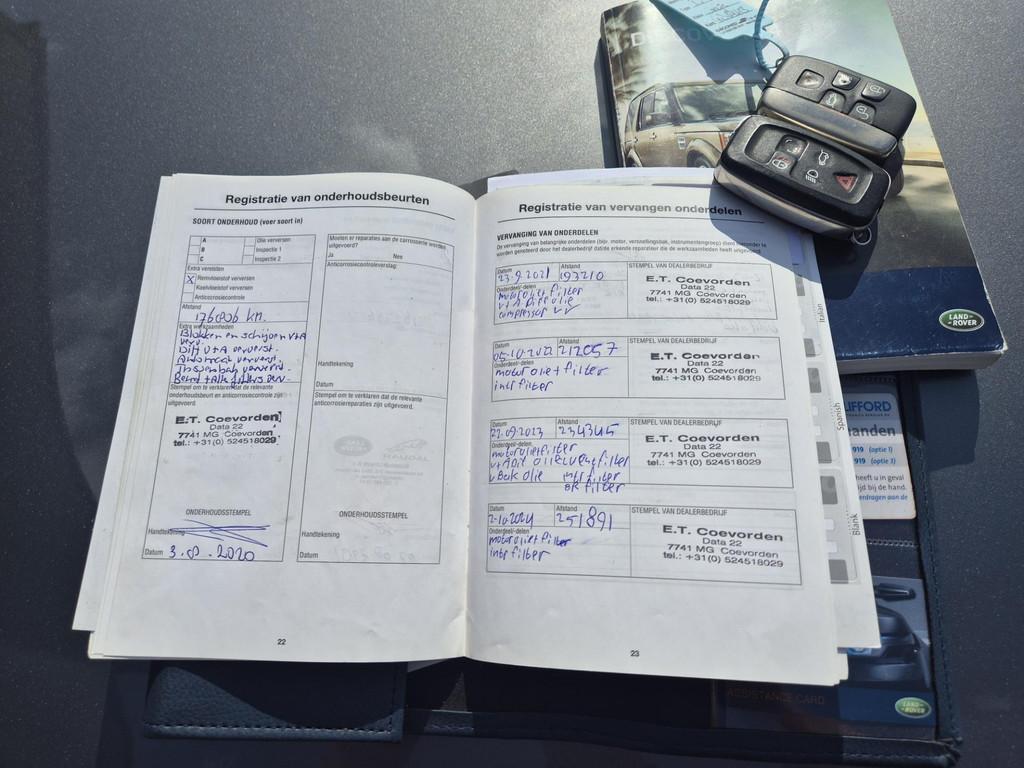 DISCOVERY
LAND-
ROVER
Registratie van onderhoudsbeurten
SOORT ONDERHOUD (voer soort in)
A
B
C
Olie verversen
Inspectie 1
Inspectie 2
Extra vereisten
X Remvloeistof verversen
Koelvloeistof verversen
Anticorrosiecontrole
Afstand
176006 km.
Extra werkzaamheden
Blokken en schijven V+A
verv.
Diff V+A ververst.
Stempel om te verklaren dat de relevante
onderhoudsbeurt en anticorrosiecontrole zijn
uitgevoerd.
E.T. Coevorden
Data 22
7741 MG Coevorden
tel.: +31(0) 524518029
ONDERHOUDSSTEMPEL
Handtekening
Datum
2020
Moeten er reparaties aan de carrosserie worden
uitgevoerd?
Ja Nee
Anticorrosiecontroleverslag:
Handtekening
Datum
Stempel om te verklaren dat de relevante
anticorrosiereparaties zijn uitgevoerd.
ONDERHOUDSSTEMPEL
Handtekening
Datum
22
Registratie van vervangen onderdelen
VERVANGING VAN ONDERDELEN
De vervanging van belangrijke onderdelen (bijv. motor, versnellingsbak, instrumentengroep) dient hieronder te
worden genoteerd door het dealerbedrijf dat/de erkende reparateur die de werkzaamheden heeft uitgevoerd.
Datum Afstand STEMPEL VAN DEALERBEDRIJF
23.9.2021 193210
Onderdeel/-delen
motorolie+filter
V+A Diff olie
compressor
E.T. Coevorden
Data 22
7741 MG Coevorden
tel.: +31(0) 524518029
Datum Afstand STEMPEL VAN DEALERBEDRIJF
05-10-2022 212057
Onderdeel/-delen
motorolie+filter
intr filter
E.T. Coevorden
Data 22
7741 MG Coevorden
tel.: +31(0) 524518029
Datum Afstand STEMPEL VAN DEALERBEDRIJF
22.09.2023 234345
Onderdeel/-delen
motorolie+filter
intr filter
filter
E.T. Coevorden
Data 22
7741 MG Coevorden
tel.: +31(0) 524518029
Datum Afstand STEMPEL VAN DEALERBEDRIJF
2-10-2024 251891
Onderdeel/-delen
motorolie+filter
intr filter
E.T. Coevorden
Data 22
7741 MG Coevorden
tel.: +31(0) 524518029
23
Italian
Spanish
Blank
LIFFORD
anden
919 (optie 1)
919 (optie 3)
heeft u in geval
ijd bij de hand.
erdragen aan de
ASSISTANCE CARD
LAND-
ROVER